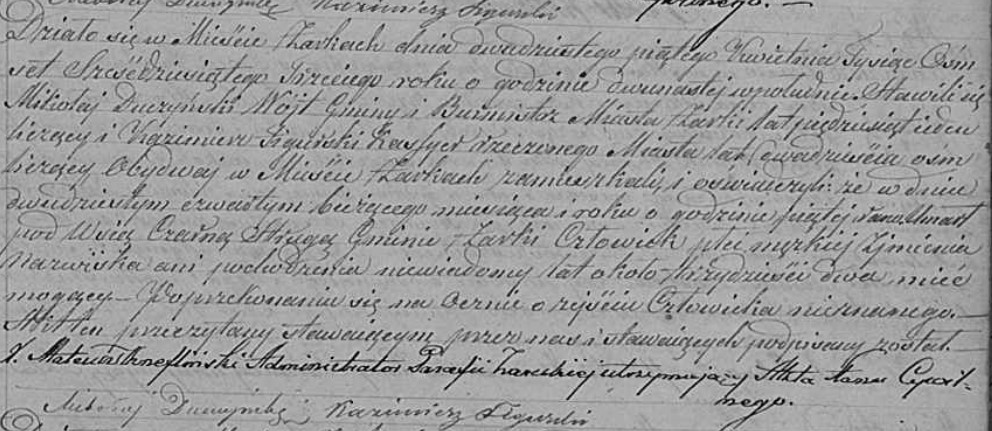 Mikołaj Duczyński Kazimierz Figurski
Działo się w Mieście Żarkach dnia dwudziestego piątego Kwietnia Tysiąc Ośm
set Sześćdziesiątego Trzeciego roku o godzinie dwunastej w południe. Stawili się
Mikołaj Duczyński Wójt Gminy i Burmistrz Miasta Żarki lat pięćdziesiąt jeden
liczący i Kazimierz Figurski Kassyer rzeczonego Miasta lat dwadzieścia ośm
liczący Obydwaj w Mieście Żarkach zamieszkali, i oświadczyli: że w dniu
dwudziestym czwartym bieżącego miesiąca i roku o godzinie piątej rano, Umarł
pod Wsią Czarną Strugą Gminie Żarki Człowiek płci męzkiej Imienia
Nazwiska ani pochodzenia niewiadomy lat około trzydzieści dwa mieć
mogący. — Po przekonaniu się na ocznie o zejściu Człowieka nieznanego. —
Akt ten przeczytany stawającym przez nas i stawających podpisany został. —
X. Mateusz Administrator Parafii Żareckiej utrzymujący Akta Stanu Cywil-
nego.
Mikołaj Duczyński, Kazimierz Figurski